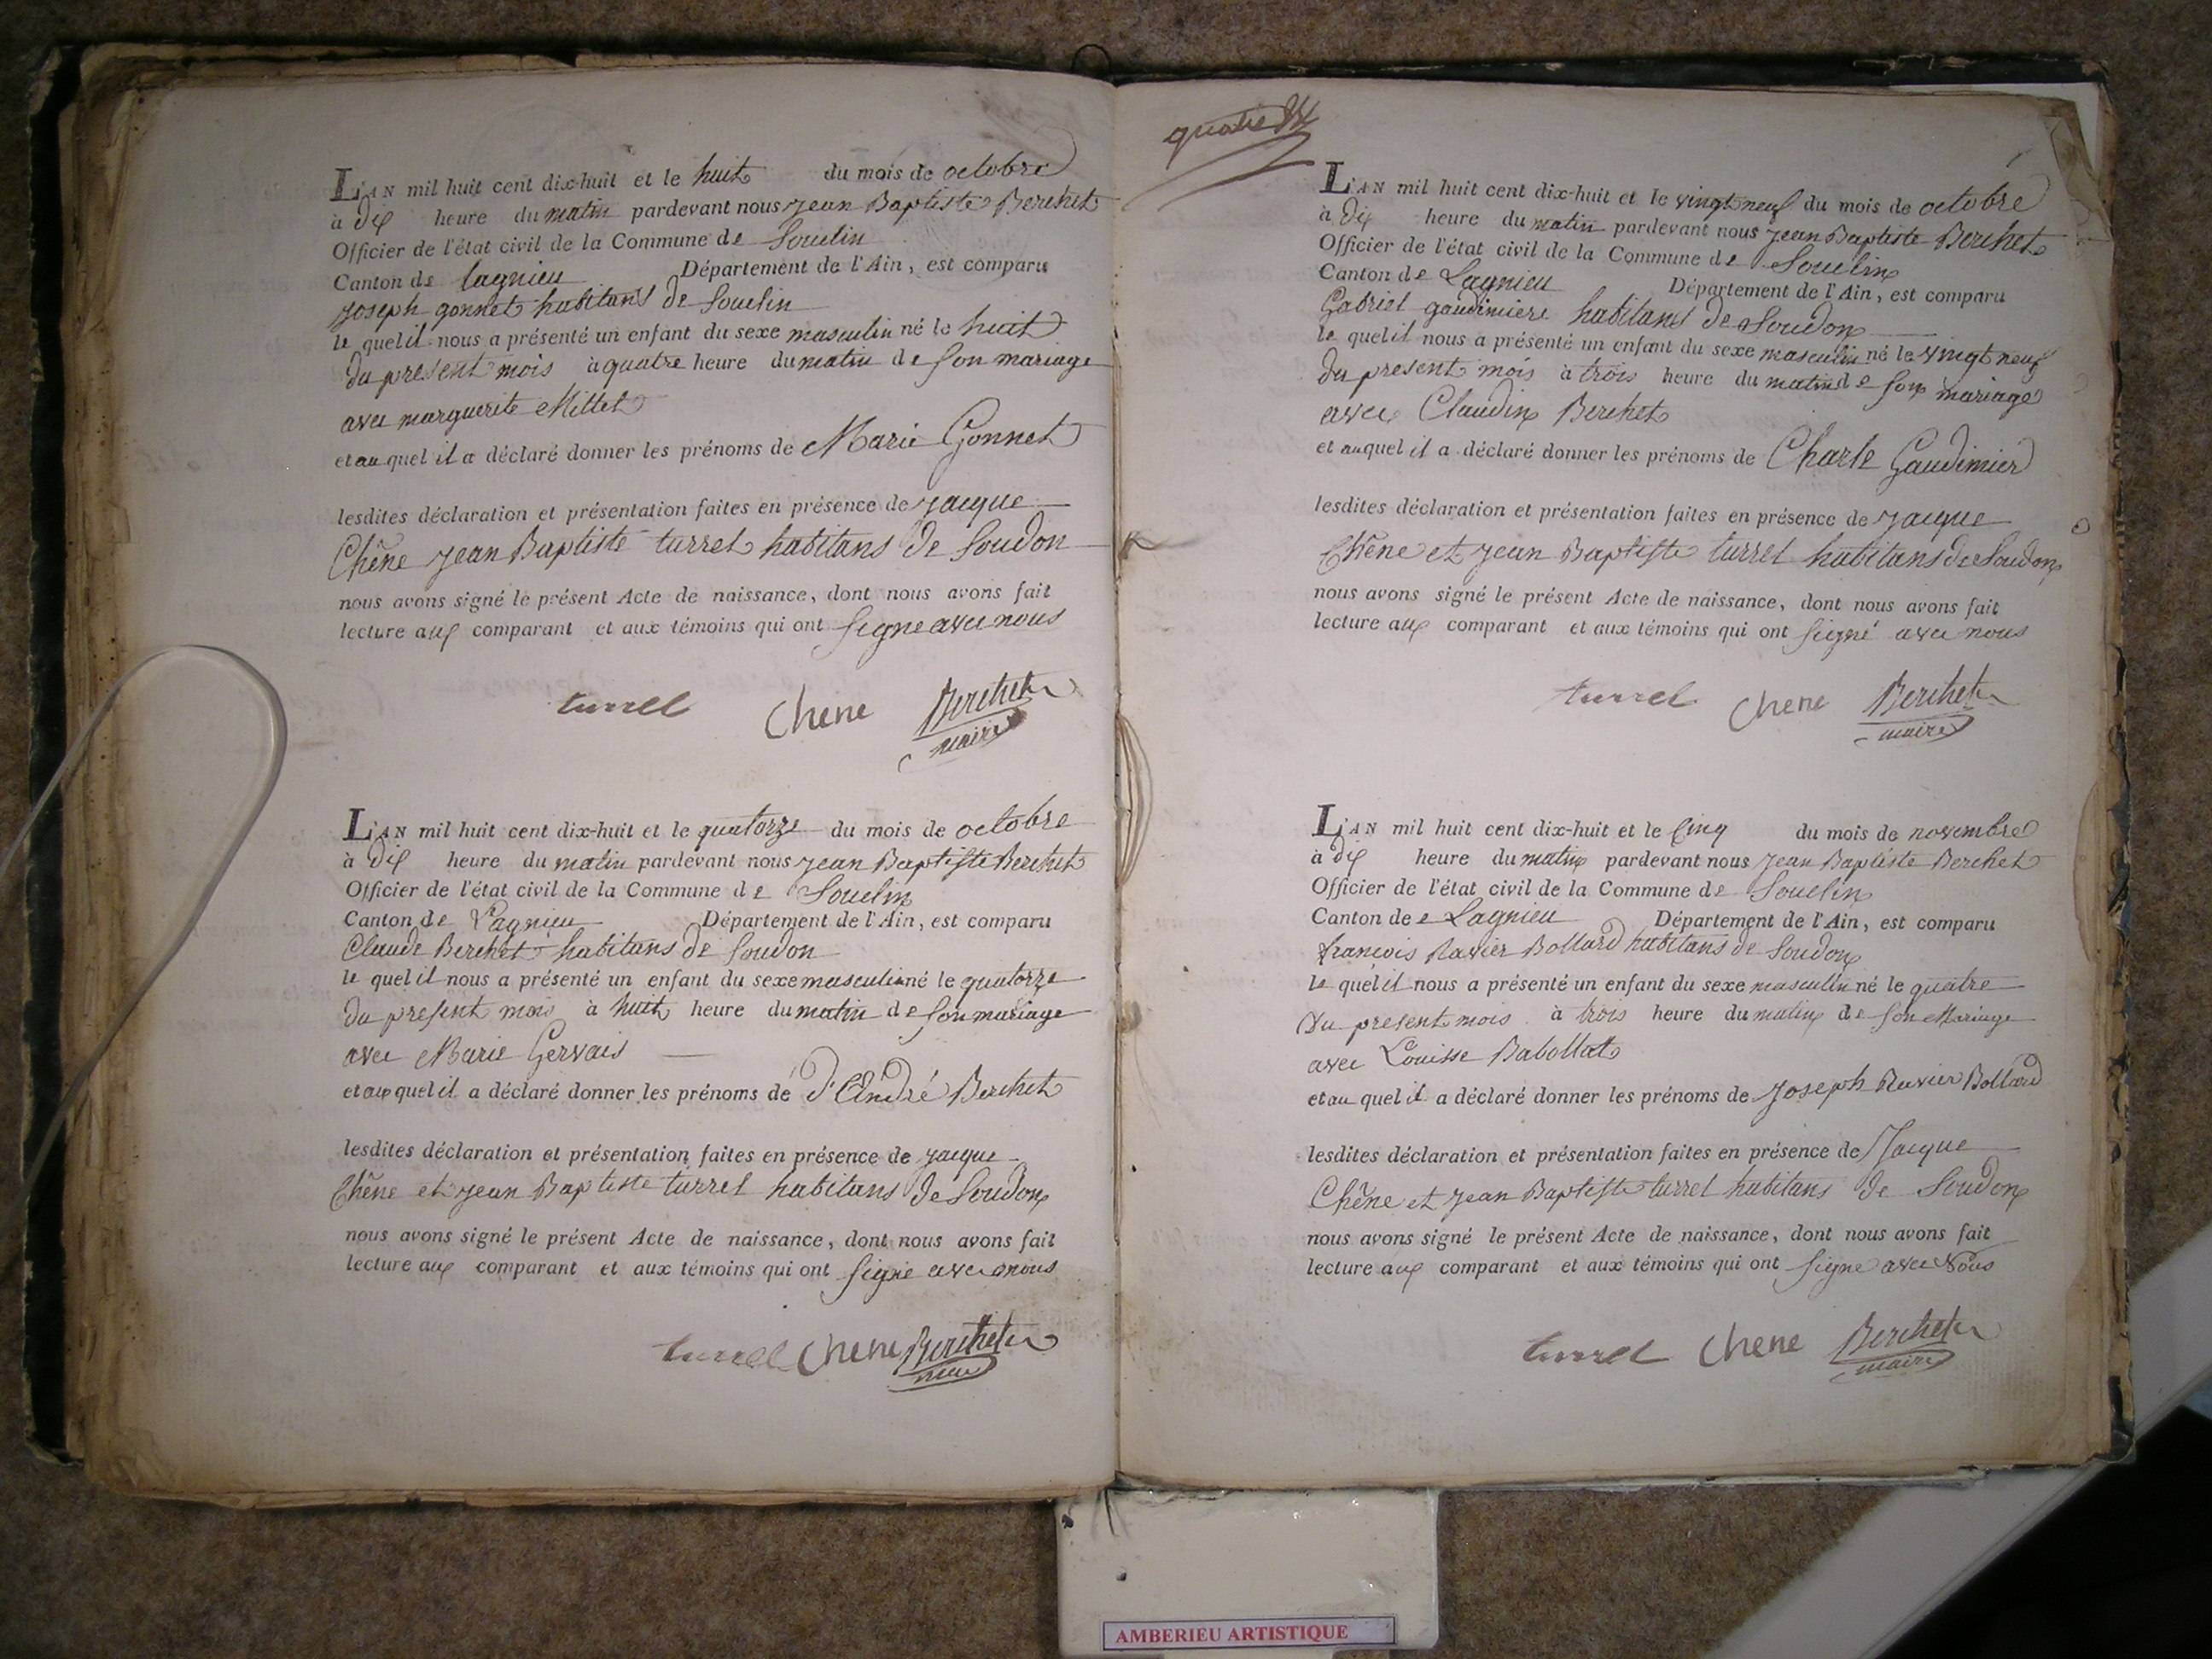 L'AN mil huit cent dix-huit et le huit du mois de octobre
à dix heure du matin pardevant nous Jean Baptiste Berchet
Officier de l'état civil de la Commune de Souclin
Canton de lagnieu Département de l'Ain, est comparu
Joseph gonnet habitans de Souclin
le quel il nous a présenté un enfant du sexe masculin né le huit
du present mois à quatre heure du matin de son mariage
avec marguerite Millet
et au quel il a déclaré donner les prénoms de Marie Gonnet
lesdites déclaration et présentation faites en présence de Jacque
Chêne Jean Baptiste turrel habitans de Soudon
nous avons signé le présent Acte de naissance, dont nous avons fait
lecture aux comparant et aux témoins qui ont signe avec nous
turrel Chene Berchet
maire
L'AN mil huit cent dix-huit et le quatorze du mois de octobre
à dix heure du matin pardevant nous Jean Baptiste Berchet
Officier de l'état civil de la Commune de Souclin
Canton de Lagnieu Département de l'Ain, est comparu
Claude Berchet habitans de Soudon
le quel il nous a présenté un enfant du sexe masculin né le quatorze
du present mois à huit heure du matin de son mariage
avec Marie Gervais
et aux quel il a déclaré donner les prénoms de d'André Berchet
lesdites déclaration et présentation faites en présence de Jacque
Chêne et Jean Baptiste turrel habitans de Soudon
nous avons signé le présent Acte de naissance, dont nous avons fait
lecture aux comparant et aux témoins qui ont signé avec nous
turrel Chene Berchet
maire
quatre
L'AN mil huit cent dix-huit et le vingt neuf du mois de octobre
à dix heure du matin pardevant nous Jean Baptiste Berchet
Officier de l'état civil de la Commune de Souclin
Canton de Lagnieu Département de l'Ain, est comparu
Gabriel gaudimiere habitans de Soudon
le quel il nous a présenté un enfant du sexe masculin né le vingt neuf
du present mois à trois heure du matin de son mariage
avec Claudin Berchet
et auquel il a déclaré donner les prénoms de Charle Gaudimier
lesdites déclaration et présentation faites en présence de Jacque
Chêne et Jean Baptiste turrel habitans de Soudon
nous avons signé le présent Acte de naissance, dont nous avons fait
lecture aux comparant et aux témoins qui ont signé avec nous
turrel Chene Berchet
maire
L'AN mil huit cent dix-huit et le Cinq du mois de novembre
à dix heure du matin pardevant nous Jean Baptiste Berchet
Officier de l'état civil de la Commune de Souclin
Canton de Lagnieu Département de l'Ain, est comparu
françois Ravier Bollard habitans de Soudon
le quel il nous a présenté un enfant du sexe masculin né le quatre
du present mois à trois heure du matin de son Mariage
avec Louisse Babollat
et au quel il a déclaré donner les prénoms de Joseph Ravier Bollard
lesdites déclaration et présentation faites en présence de Jacque
Chêne et Jean Baptiste turrel habitans de Soudon
nous avons signé le présent Acte de naissance, dont nous avons fait
lecture aux comparant et aux témoins qui ont signe avec Nous
turrel Chene Berchet
maire
AMBERIEU ARTISTIQUE